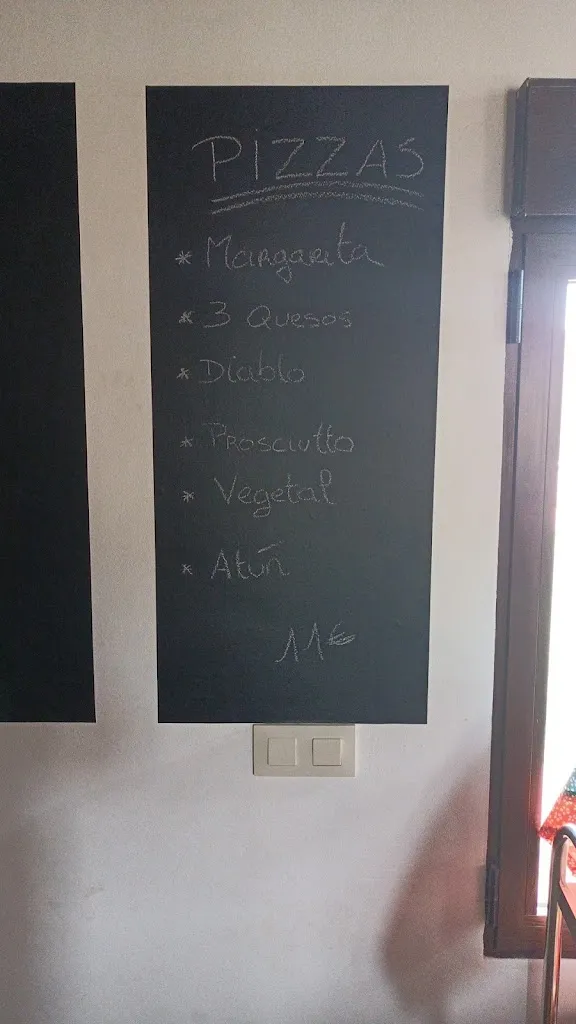 PIZZAS
* Margarita
* 3 Quesos
* Diablo
* Prosciutto
* Vegetal
* Atún
11€